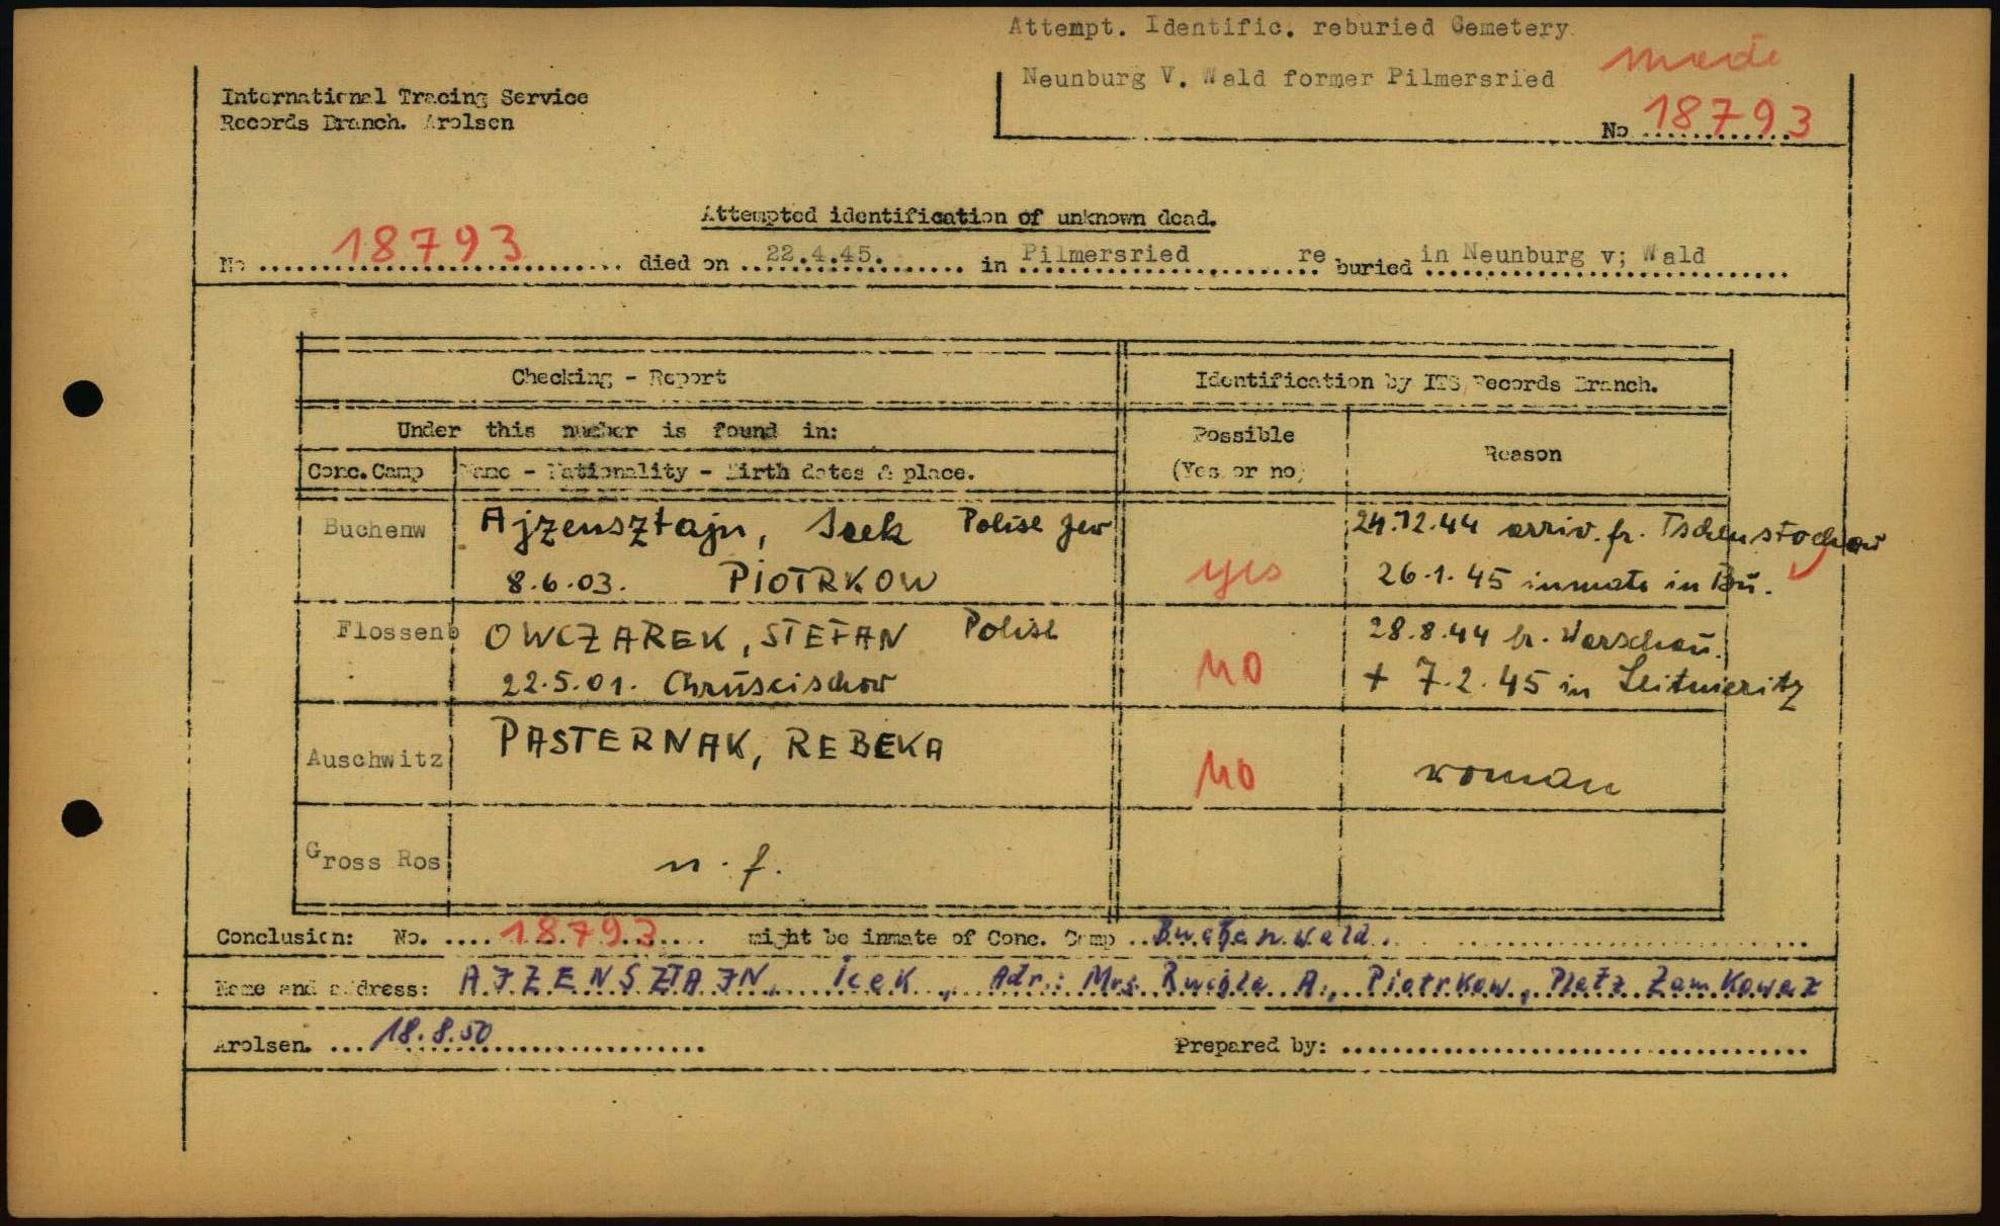 Attempt. Identific. reburied Cemetery
Neunburg V. Wald former Pilmersried
made
International Tracing Service
Records Branch. Arolsen
No 18793
Attempted identification of unknown dead.
No 18793 died on 22.4.45. in Pilmersried re buried in Neunburg v; Wald
Checking - Report
Identification by ITS Records Branch.
Under this number is found in:
Possible
(Yes or no)
Reason
Conc. Camp
Name - Nationality - Birth dates & place.
Buchenw
Ajzensztajn, Icek Polish Jew
8.6.03. PIOTRKOW
yes
24.12.44 arriv. fr. Tschenstochau
26.1.45 inmate in Bu.
Flossenb
OWCZAREK, STEFAN Polish
22.5.01. Chruscischow
no
28.8.44 fr. Warschau.
+ 7.2.45 in Leitmeritz
Auschwitz
PASTERNAK, REBEKA
no
woman
Gross Ros
n. f.
Conclusion: No. 18793 might be inmate of Conc. Camp Buchenwald
Name and address: AJZENSZTAJN, Icek, Adr.: Mrs. Ruchla A., Piotrkow, Platz Zamkowez
Arolsen. 18.8.50
Prepared by: